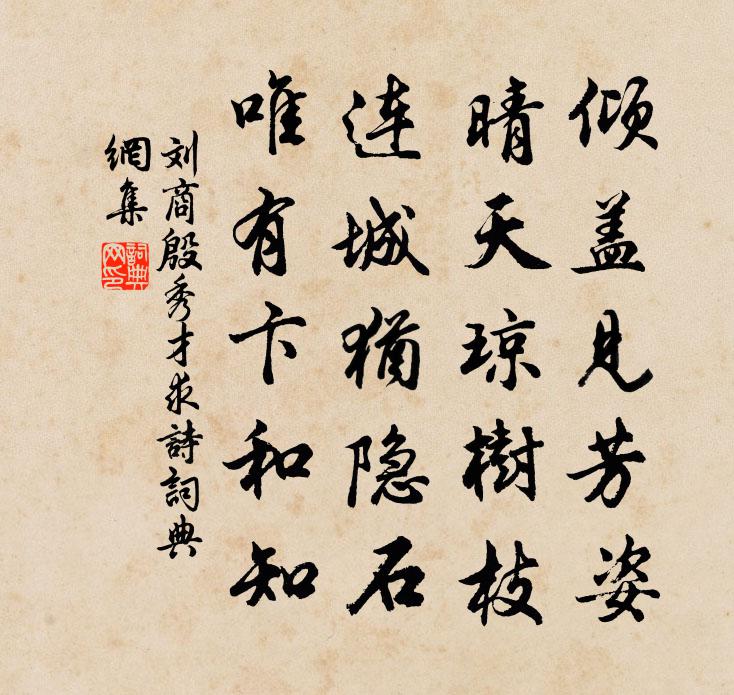 倾盖见芳姿
晴天琼樹枝
连城猶隐石
唯有卞和知
刘商殷秀才求詩詞典
網集
詞典
网印